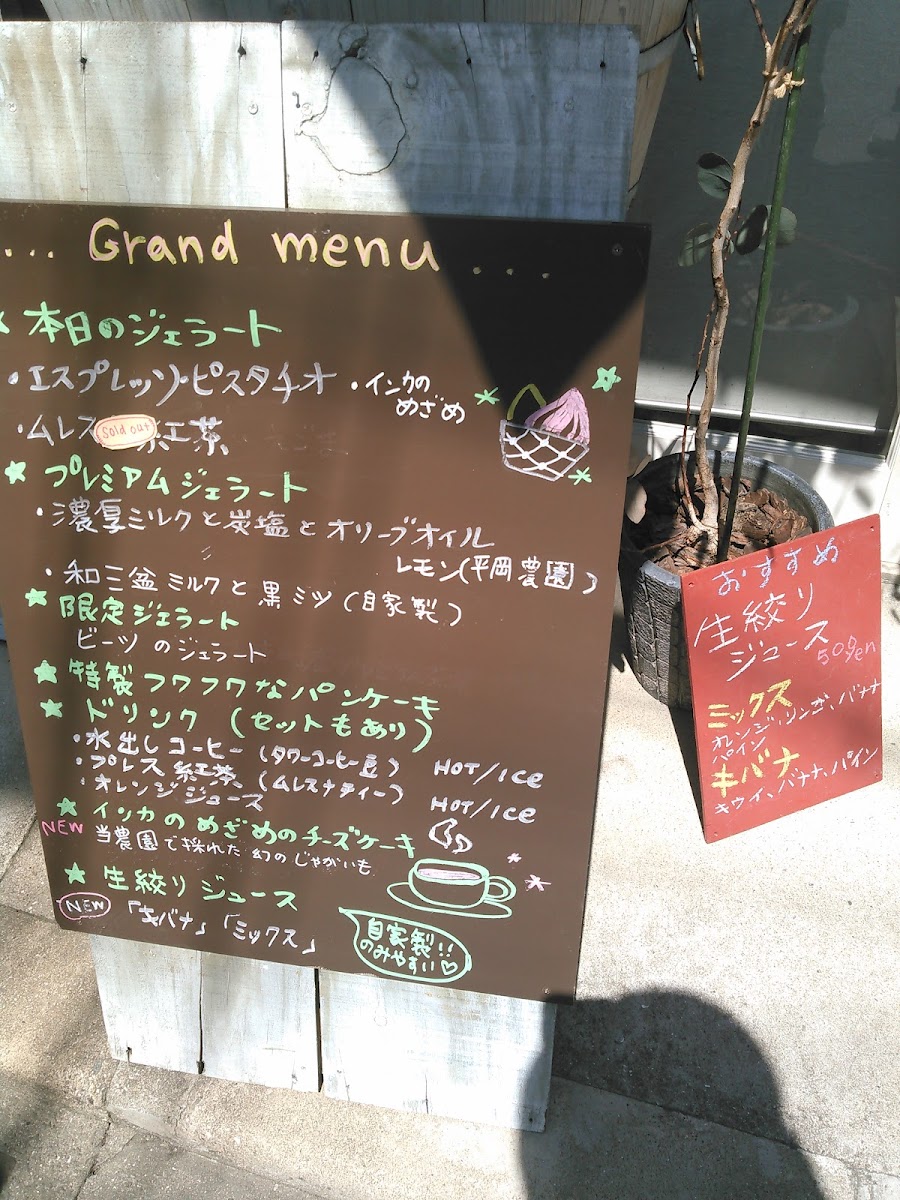 ... Grand menu ....
本日のジェラート
・エスプレッソ・ピスタチオ ・インカの
めざめ
・ムレス sold out 紅茶
プレミアムジェラート
・濃厚ミルクと炭塩とオリーブオイル
レモン(平岡農園)
・和三盆ミルクと黒ミツ(自家製)
限定ジェラート
ビーツのジェラート
特製フワフワなパンケーキ
ドリンク (セットもあり)
・水出しコーヒー (タワーコーヒー豆) HOT/ICE
・プレス紅茶 (ムレスナティー) HOT/ICE
・オレンジジュース
インカのめざめのチーズケーキ
NEW 当農園で採れた幻のじゃがいも
生絞りジュース
NEW 「キバナ」「ミックス」
自家製!!
のみやすい♡
おすすめ
生絞り
ジュース
500yen
ミックス
オレンジ、リンゴ、バナナ
パイン
キバナ
キウイ、バナナ、パイン